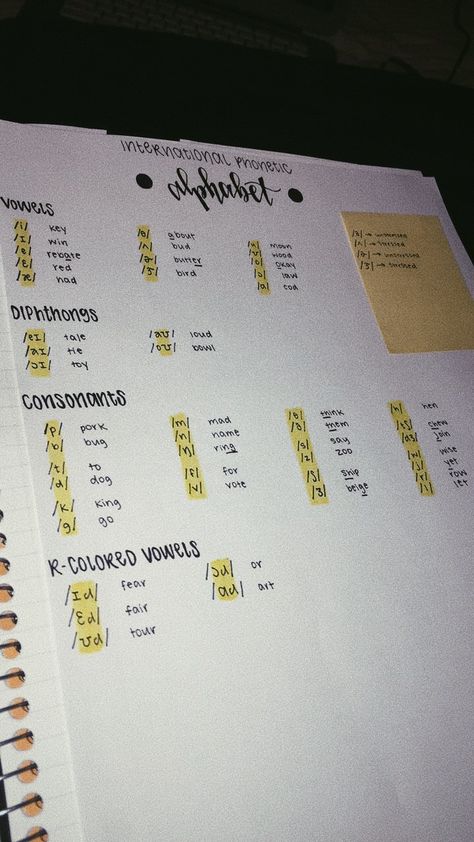 International Phonetic
alphabet
Vowels
/i/ key
/ɪ/ win
/e/ rebate
/ɛ/ red
/æ/ had
/ə/ about
/ʌ/ bud
/ɚ/ butter
/ɝ/ bird
/u/ moon
/ʊ/ wood
/o/ okay
/ɔ/ law
/ɑ/ cod
/ə/ → unstressed
/ʌ/ → stressed
/ɚ/ → unstressed
/ɝ/ → stressed
Diphthongs
/eɪ/ tale
/aɪ/ tie
/ɔɪ/ toy
/aʊ/ loud
/oʊ/ bowl
Consonants
/p/ pork
/b/ bug
/t/ to
/d/ dog
/k/ king
/g/ go
/m/ mad
/n/ name
/ŋ/ ring
/f/ for
/v/ vote
/θ/ think
/ð/ them
/s/ say
/z/ zoo
/ʃ/ ship
/ʒ/ beige
/h/ hen
/tʃ/ chew
/dʒ/ join
/w/ wise
/j/ yet
/r/ row
/l/ let
R-colored vowels
/ɪɚ/ fear
/ɛɚ/ fair
/ʊɚ/ tour
/ɔɚ/ or
/ɑɚ/ art